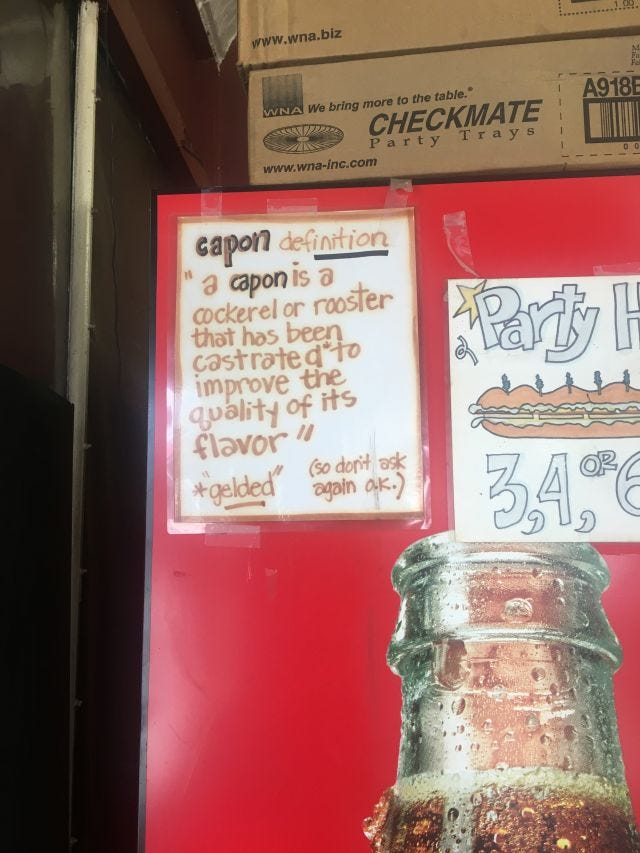 www.wna.biz
1.00
WNA We bring more to the table.®
CHECKMATE
Party Trays
www.wna-inc.com
A918
capon definition
"a capon is a
cockerel or rooster
that has been
castrated*to
improve the
quality of its
flavor"
*"gelded" (so don't ask
again o.k.)
Party H
3,4, OR 6